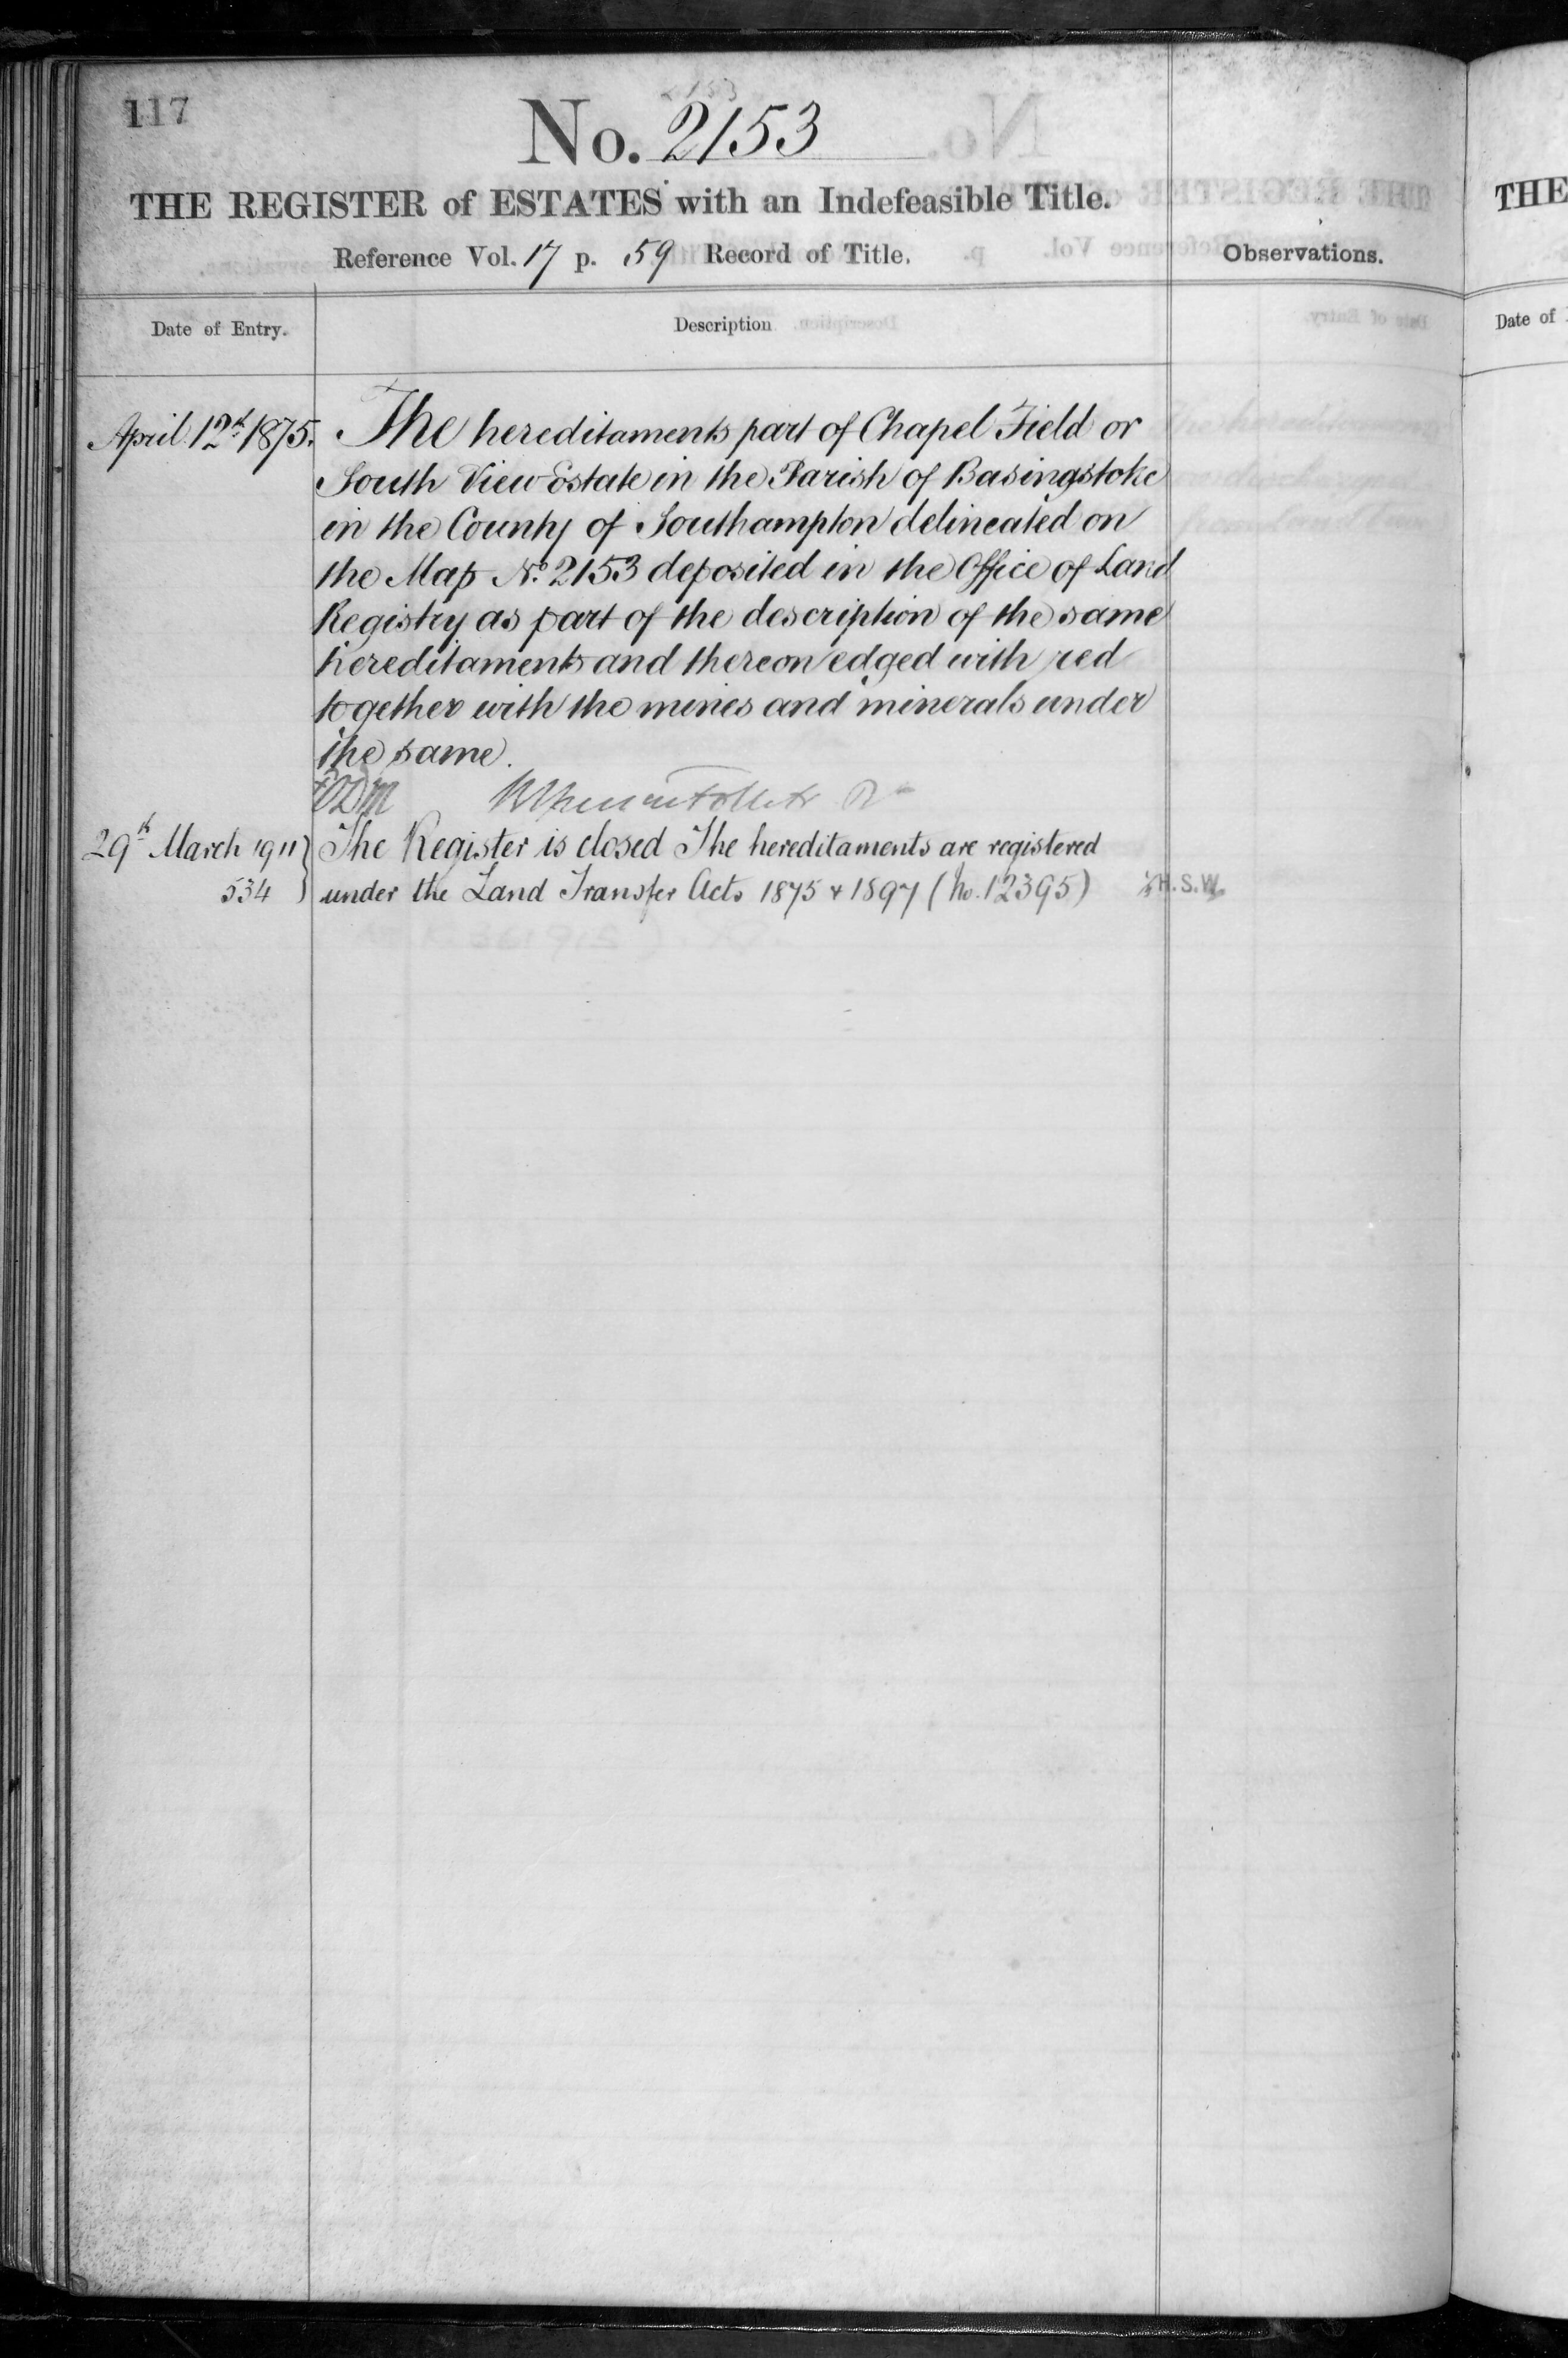 117
No. 2153
THE REGISTER of ESTATES with an Indefeasible Title.
Reference Vol. 17 p. 59 Record of Title.
Observations.
Date of Entry.
Description
April 12th 1875.
The hereditaments part of Chapel Field or
South View Estate in the Parish of Basingstoke
in the County of Southampton delineated on
the Map No. 2153 deposited in the Office of Land
Registry as part of the description of the same
hereditaments and thereon edged with red
together with the mines and minerals under
the same.
29th March 1911
534
The Register is closed The hereditaments are registered
under the Land Transfer Acts 1875 & 1897 (No. 12395)
H.S.W.
THE
Date of